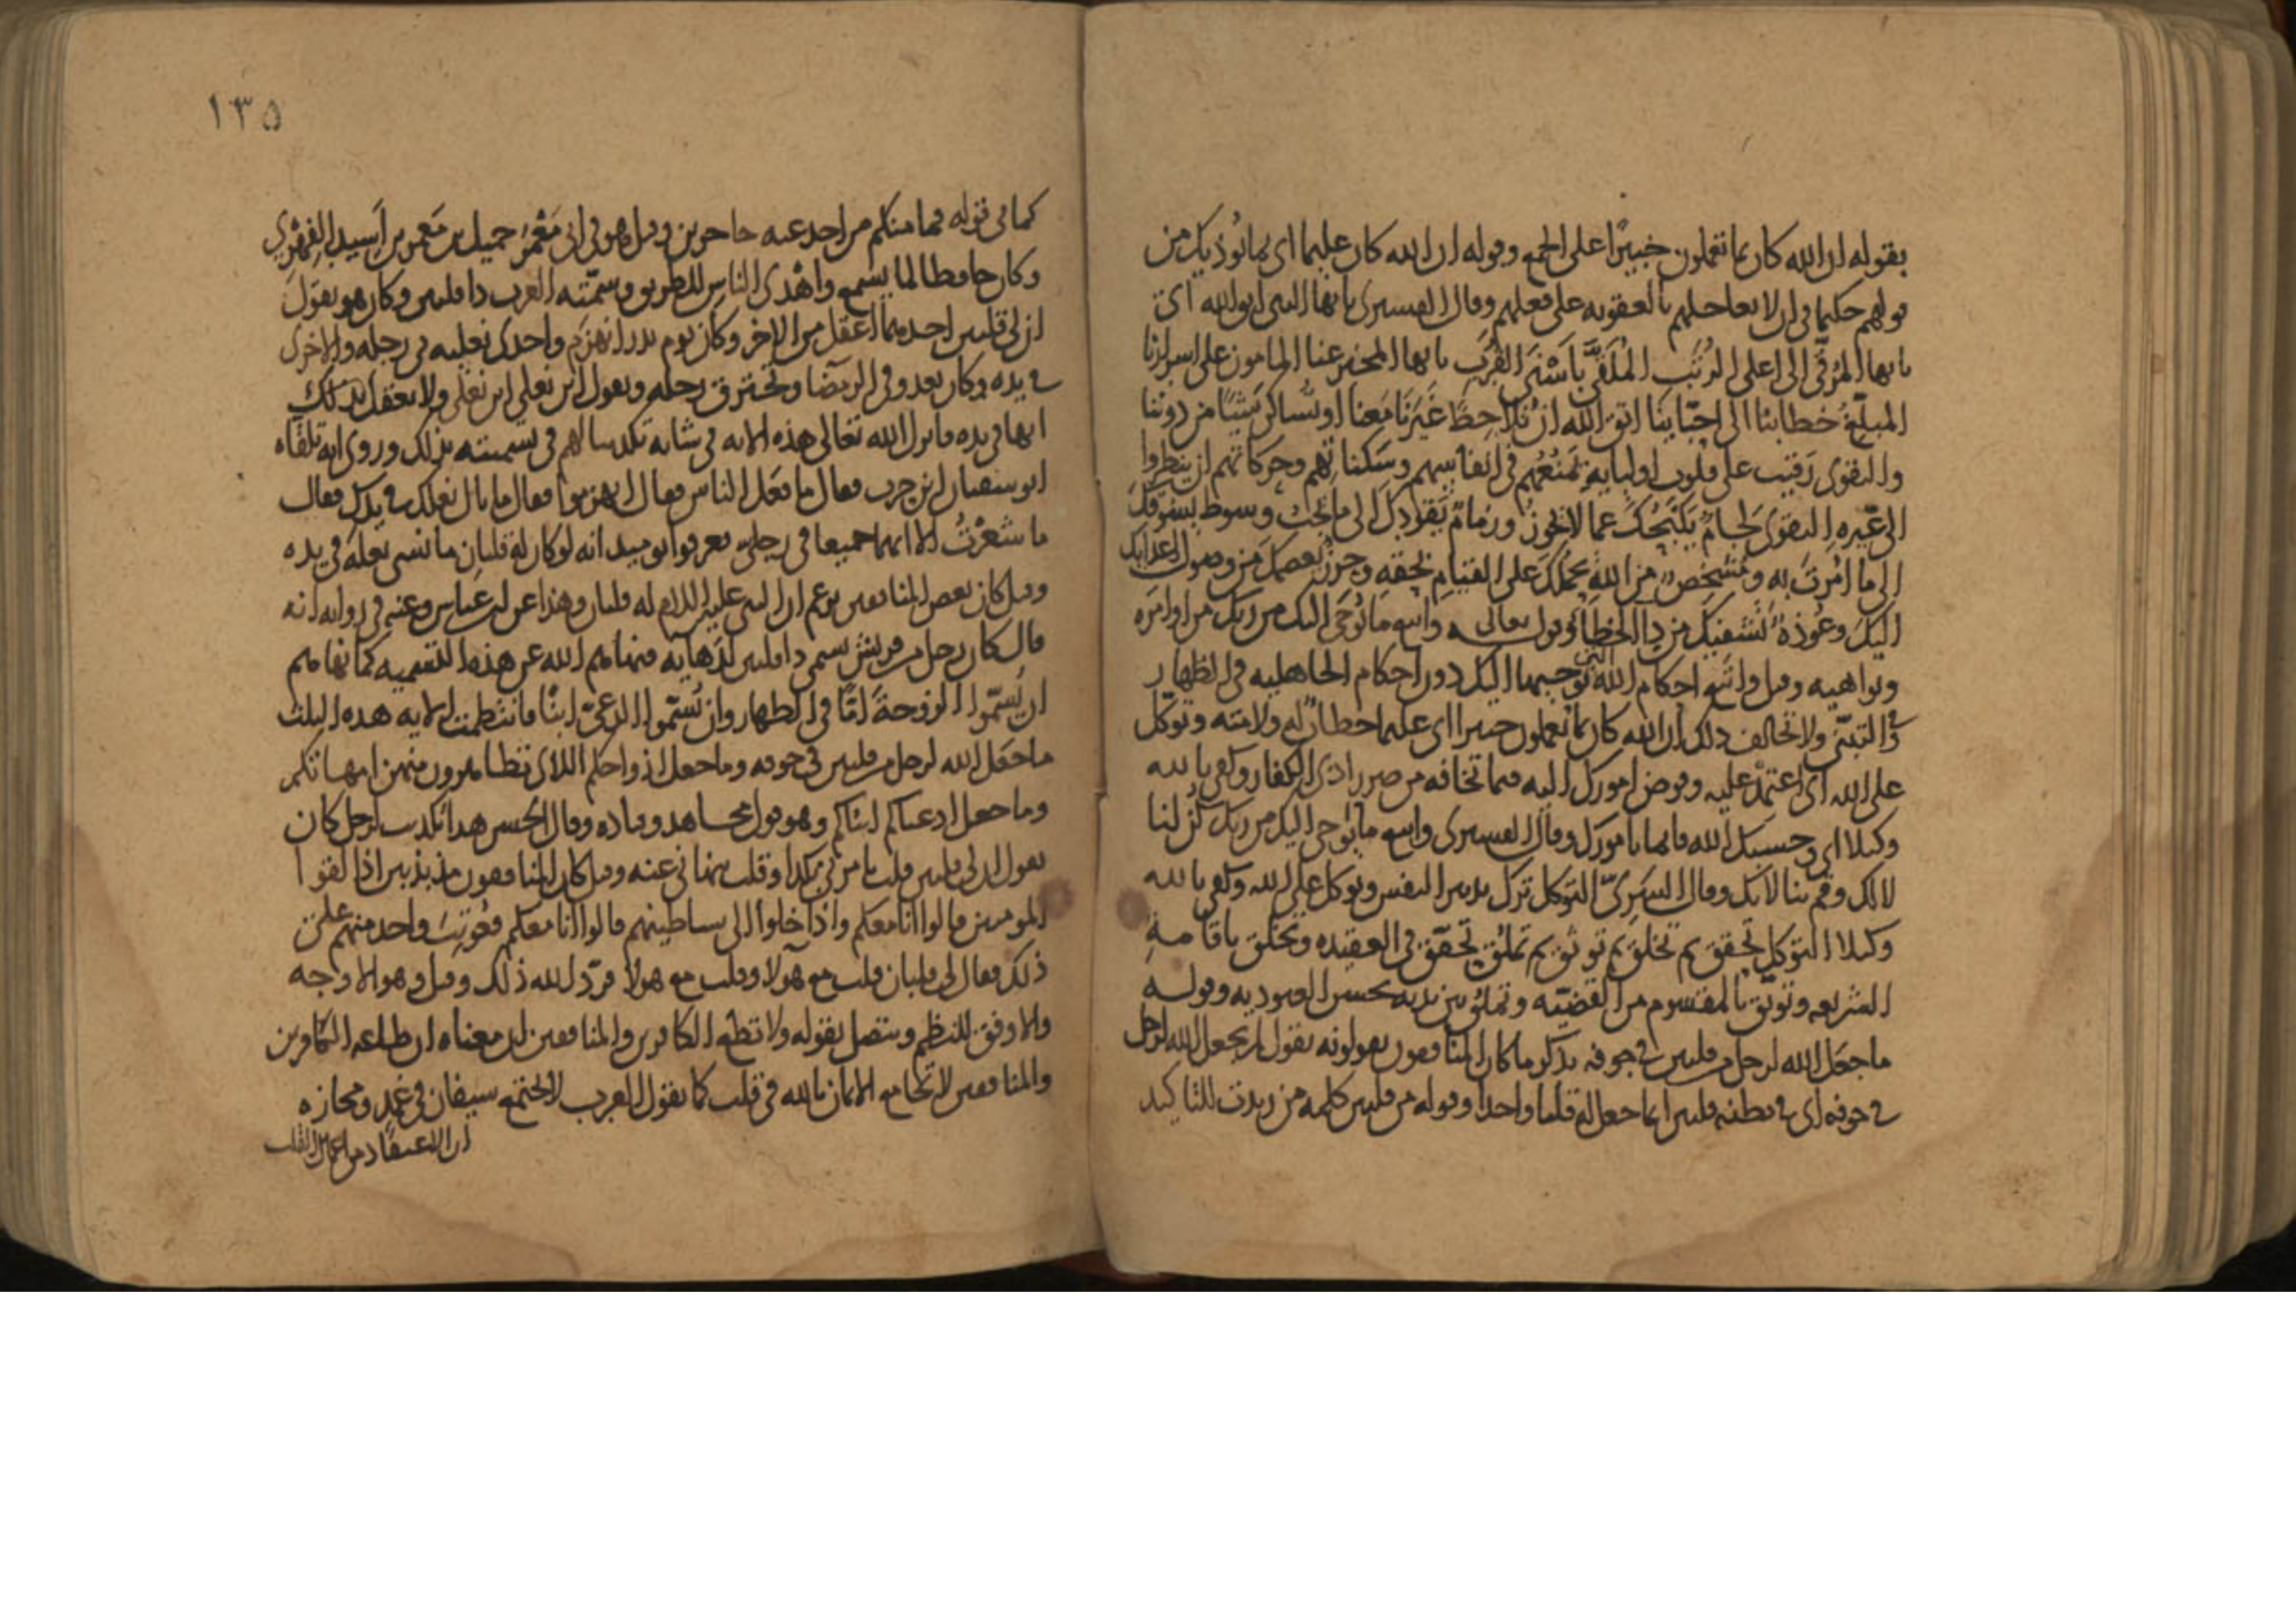 بقوله ان الله كان بما تعملون خبيرًا على الجمع وقوله ان الله كان عليما اى بما نوذيك من
قولهم حكيما فى ان لا يعاجلهم بالعقوبه على فعلهم وقال القسيرى يا يها النبى اتق الله اى
يا يها المُرَقَّى الى اعلى الرُتَب المُلَقَّى بأَسْنَى القُرَب يا يها المخبر عنا المامون على اسرارنا
المبلّغ خطابنا الى احبّائنا اتق الله ان تُلاحِظَ غَيْرَنَا مَعنا او تُساكِن شيئًا من دوننا
والتقوى رَقيب على قلوب اوليايه يَمنَعُهم فى انفاسهم وسَكَناتهم وحركاتهم ان ينظروا
الى غيره التقوى لجامٌ يَكْبَحُكَ عما لا يجوز وزمامٌ يَقودك الى ما يحب وسوط يسوقك
الى ما اُمِرْتَ به ومُشخِصٌ من الله يحملك على القيام بحقه وحرزٌ يعصمك من وصول اعدايك
اليك وعُوذة تَشفيك من دا الخطا وقول تعالى واتبع ما يُوحَى اليك من ربك من اوامره
ونواهيه وقيل واتبع احكام الله التى يوحيها اليك دون احكام الجاهليه فى الظهار
و التبنّى ولا تخالف ذلك ان الله كان بما تعملون خبيرا اى عليما خطابٌ له ولامته وتوكل
على الله اى اعتمِدْ عليه وفوض امورك اليه فيما تخافه من ضرر اذى الكفار وكفى بالله
وكيلا اى وحسبك الله قايما بامورك وقال القسيرى واتبع ما يُوحى اليك من ربك كُن لنا
لا لك وقُم بنا لا بك وقال السَرِىّ التوكل ترك تدبير النفس وتوكل على الله وكفى بالله
وكيلا التوكل تحقق ثم تخلق ثم توثق ثم تملق تحقّق فى العقيده وتخلق باقامة
الشريعه وتوثّق بالمقسوم من القضيّه وتملّق بين يديه بحسن العبوديه وقوله
ما جعل الله لرجل من قلبين فى جوفه يذكر ما كان المنافقون يقولونه يقول لم يجعل الله لرجل
فى جوفه اى فى بطنه قلبين انما جعل له قلبا واحدا وقوله من قلبين كلمه من زيدت للتاكيد
١٣٥
كما فى قوله فما منكم من احد عنه حاجزين وقيل هو فى ابى مَعْمَر جميل بن مَعمر بن اسيد الفِهْرى
وكان حافظا لما يسمع واهْدَى الناس للطريق وسمّته العرب ذا قلبين وكان هو يقول
ان لى قلبين احدهما اعقل من الاخر وكان يوم بدر انهزم واحدى نعليه فى رجله والاخرى
فى يده وكان يعدو فى الرمضا وتحترق رجله ويقول اين نعلى اين نعلى ولا يعقل بذلك
انها فى يده فانزل الله تعالى هذه الايه فى شانه تكذيبا لهم فى تسميته بذلك وروى انه تلقاه
ابو سفيان ابن حرب فقال ما فعل الناس فقال انهزموا فقال ما بال نعلك فى يدك فقال
ما شَعَرْتُ الا انهما جميعا فى رجلىّ فعرفوا يوميذ انه لو كان له قلبان ما نسى نعله فى يده
وقيل كان بعض المنافقين يزعم ان النبى عليه السلام له قلبان وهذا عن ابن عباس وعنه فى روايه انه
قال كان رجل من قريش يسمى ذا قلبين لدَهايه فنهاهم الله عن هذه التسميه كما نهاهم
ان يُسَمّوا الزوجةَ اُمًّا فى الظهار وان يُسَمّوا الدعىّ ابنًا فانتظمت الايه هذه الثلث
ما جعل الله لرجل من قلبين فى جوفه وما جعل ازواجكم اللاى تظاهرون منهن امهاتكم
وما جعل ادعياكم ابناكم وهو قول مجاهد وقتاده وقال الحسن هذا تكذيب لرجل كان
يقول ان لى قلبين قلب يامرنى بكذا وقلب ينهانى عنه وقيل كان المنافقون مذبذبين اذا لقوا
المومنين قالوا انا معكم واذا خلوا الى شياطينهم قالوا انا معكم فعُوتِبَ واحد منهم على
ذلك فقال لى قلبان قلب مع هولا وقلب مع هولا فردّ الله ذلك وقيل وهو الاوجه
والاوفق للنظم ويتصل بقوله ولا تطع الكافرين والمنافقين ان معناه ان طاعه الكافرين
والمنافقين لا تجامع الايمان بالله فى قلب كما يقول العرب لا يجتمع سيفان فى غمد ومجازه
ان الاعتقاد من اعمال القلب